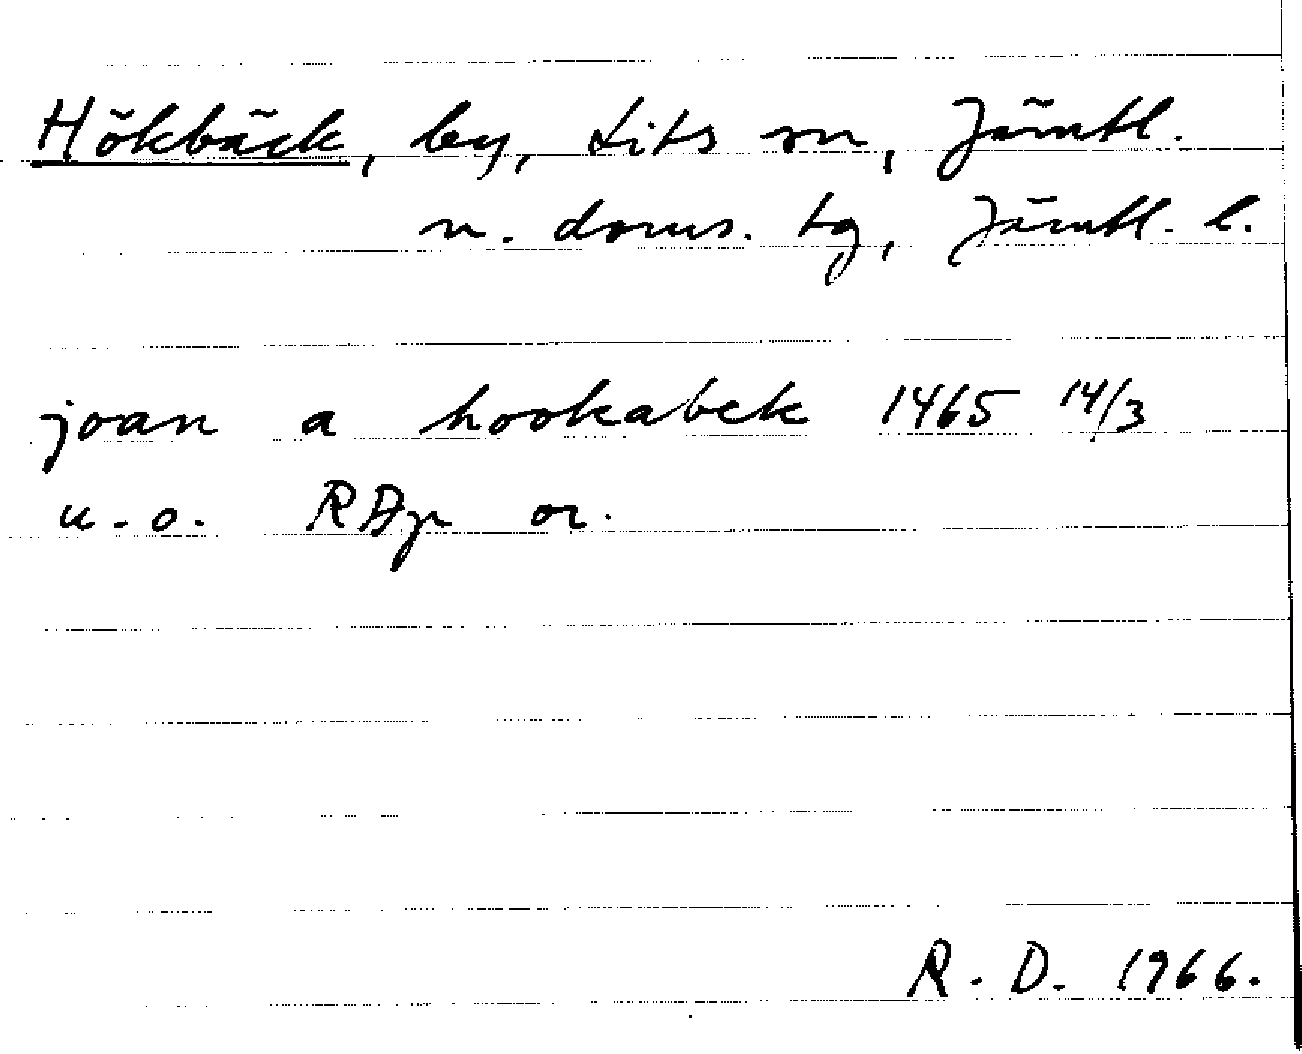 Hökbäck, by, Lits sn, Jämtl.
n. doms. tg, Jämtl. l.
joan a hookabek 1465 14/3
u. o. RAp or.
R. D. 1966.